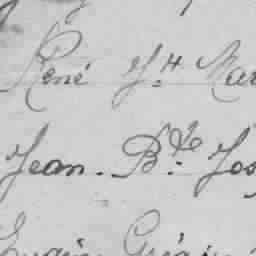 René Jh Mar
Jean-Bte Jos